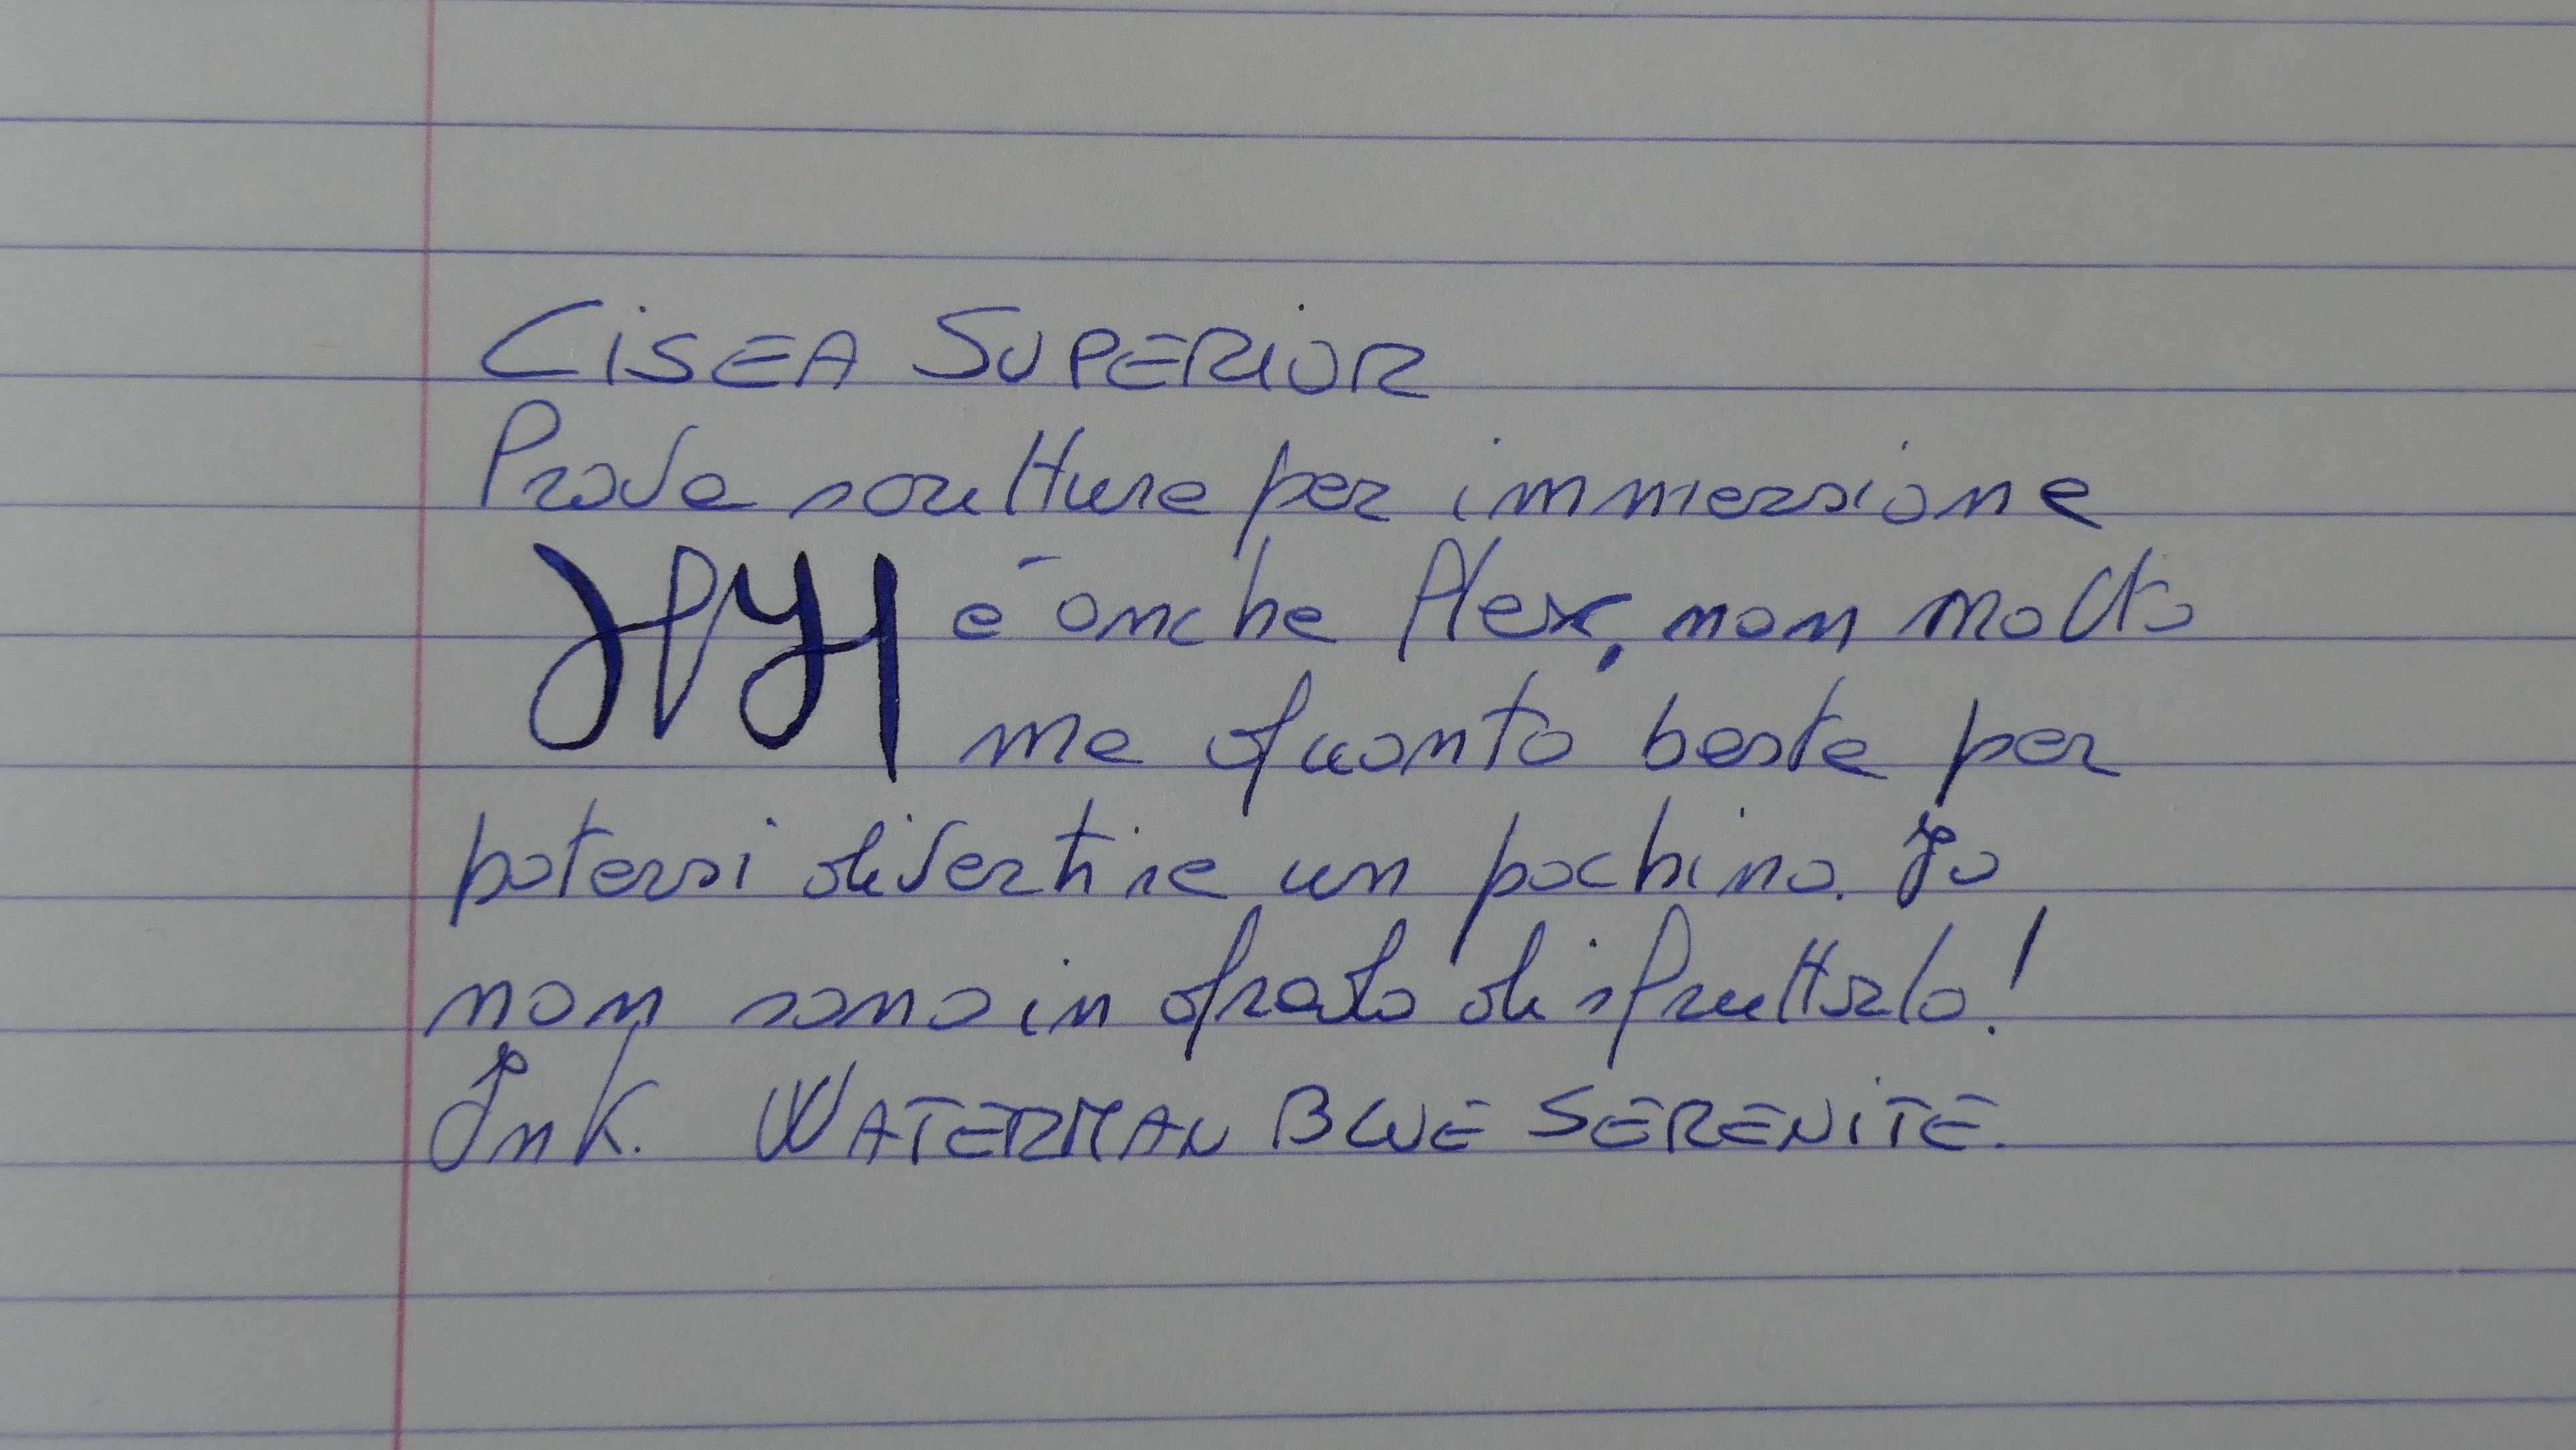 CiSEA SUPERiOR
Prova scrittura per immersione
è anche flex, non molto
ma quanto basta per
potersi divertire un pochino. Io
non sono in grado di sfruttarlo!
Ink. WATERMAN BLUE SERENiTE.